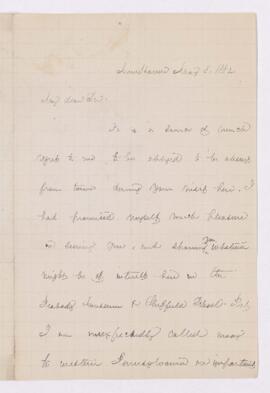 New Haven May 8. 1882
My dear Sir.
It is a source of much
regret to me to be obliged to be away
from town during your visit here. I
had promised myself much pleasure
in seeing you, and showing you whatever
might be of interest here in the
Peabody Museum & Sheffield School. But
I am unexpectedly called away
to western Pennsylvania on important